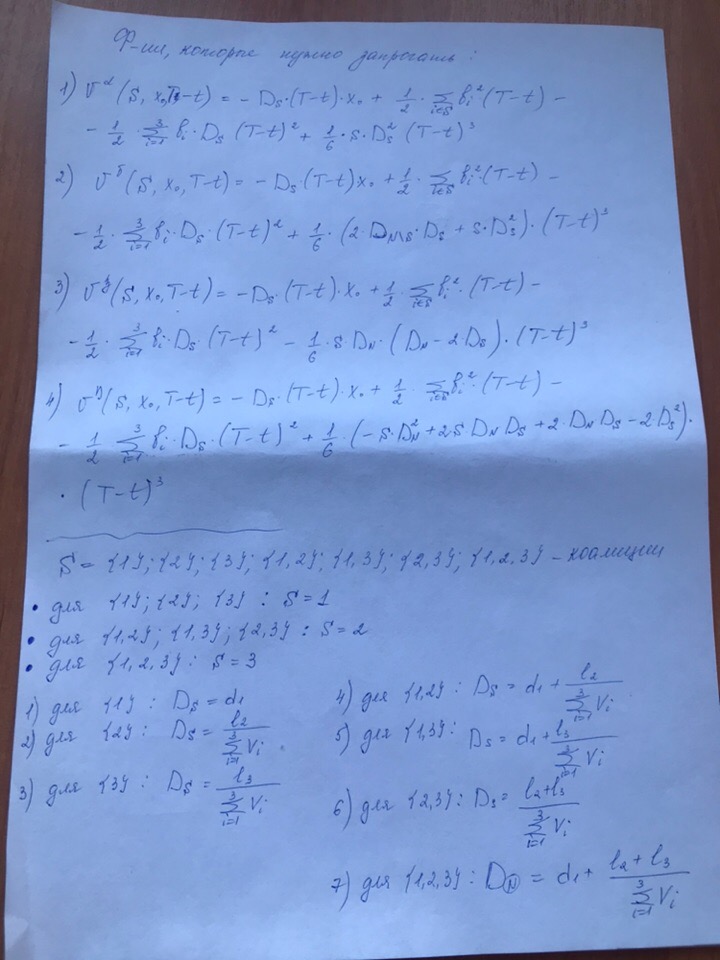 Ф-ии, которые нужно запрогать:
1) V^α (S, x₀, T-t) = - D_S·(T-t)·x₀ + 1/2 · ∑_{i∈S} b_i² (T-t) -
- 1/2 · ∑_{i=1}^3 b_i · D_S (T-t)² + 1/6 · S · D_S² (T-t)³
2) V^δ (S, x₀, T-t) = - D_S·(T-t)x₀ + 1/2 · ∑_{i∈S} b_i² (T-t) -
- 1/2 · ∑_{i=1}^3 b_i · D_S · (T-t)² + 1/6 · (2·D_{N\S}·D_S + S·D_S²)·(T-t)³
3) V^ζ (S, x₀, T-t) = - D_S·(T-t)·x₀ + 1/2 · ∑_{i∈S} b_i² · (T-t) -
- 1/2 · ∑_{i=1}^3 b_i · D_S · (T-t)² - 1/6 · S · D_N · (D_N - 2D_S) · (T-t)³
4) V^η (S, x₀, T-t) = - D_S·(T-t)·x₀ + 1/2 · ∑_{i∈S} b_i² · (T-t) -
- 1/2 · ∑_{i=1}^3 b_i · D_S · (T-t)² + 1/6 · (-S·D_N² + 2S D_N D_S + 2·D_N D_S - 2·D_S²)·
· (T-t)³
S = {1}; {2}; {3}; {1,2}; {1,3}; {2,3}; {1,2,3} - коалиции
• для {1}; {2}; {3} : S=1
• для {1,2}; {1,3}; {2,3} : S=2
• для {1,2,3} : S=3
1) для {1} : D_S = d₁
2) для {2} : D_S = l₂ / ∑_{i=1}^3 V_i
3) для {3} : D_S = l₃ / ∑_{i=1}^3 V_i
4) для {1,2} : D_S = d₁ + l₂ / ∑_{i=1}^3 V_i
5) для {1,3} : D_S = d₁ + l₃ / ∑_{i=1}^3 V_i
6) для {2,3} : D_S = l₂+l₃ / ∑_{i=1}^3 V_i
7) для {1,2,3} : D_N = d₁ + l₂ + l₃ / ∑_{i=1}^3 V_i